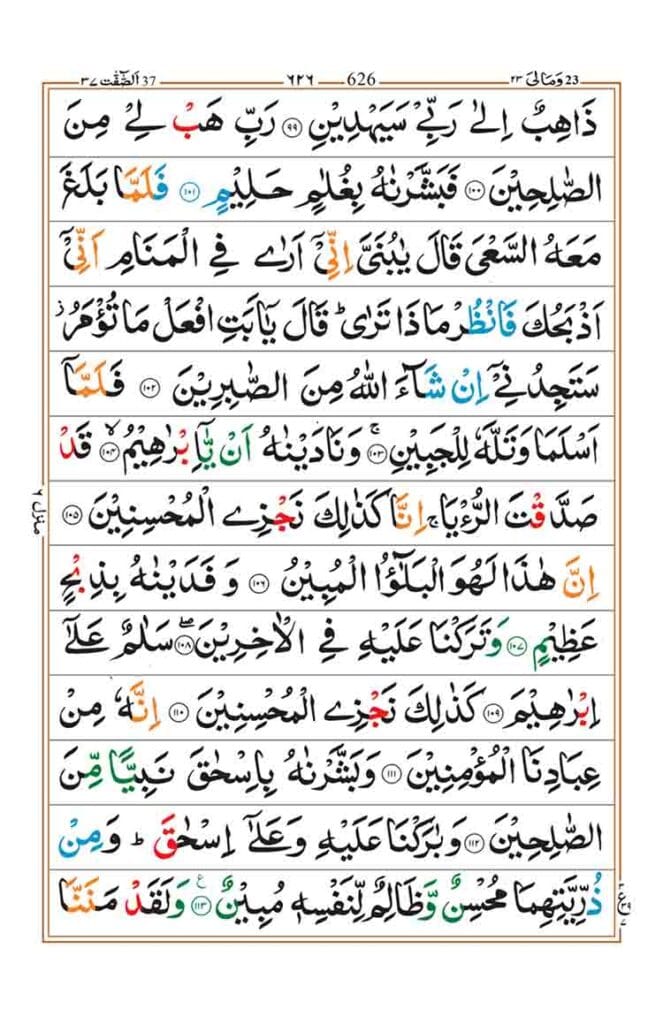 ٣٧ اَلصّٰٓفّٰت 37 ٦٢٦ 626 ٢٣ وَمَا لِیَ 23
ذَاهِبٌ اِلٰی رَبِّیْ سَیَهْدِیْنِ ﴿٩٩﴾ رَبِّ هَبْ لِیْ مِنَ
الصّٰلِحِیْنَ ﴿١٠٠﴾ فَبَشَّرْنٰهُ بِغُلٰمٍ حَلِیْمٍ ﴿١٠١﴾ فَلَمَّا بَلَغَ
مَعَهُ السَّعْیَ قَالَ یٰبُنَیَّ اِنِّیْۤ اَرٰی فِی الْمَنَامِ اَنِّیْۤ
اَذْبَحُكَ فَانْظُرْ مَاذَا تَرٰی ؕ قَالَ یٰۤاَبَتِ افْعَلْ مَا تُؤْمَرُ ؗ
سَتَجِدُنِیْۤ اِنْ شَآءَ اللّٰهُ مِنَ الصّٰبِرِیْنَ ﴿١٠٢﴾ فَلَمَّاۤ
اَسْلَمَا وَتَلَّهٗ لِلْجَبِیْنِ ﴿١٠٣﴾ۚ وَنَادَیْنٰهُ اَنْ یّٰۤاِبْرٰهِیْمُ ﴿١٠٤﴾ۙ قَدْ
صَدَّقْتَ الرُّءْیَا ۚ اِنَّا كَذٰلِكَ نَجْزِی الْمُحْسِنِیْنَ ﴿١٠٥﴾
اِنَّ هٰذَا لَهُوَ الْبَلٰٓؤُا الْمُبِیْنُ ﴿١٠٦﴾ وَفَدَیْنٰهُ بِذِبْحٍ
عَظِیْمٍ ﴿١٠٧﴾ وَتَرَكْنَا عَلَیْهِ فِی الْاٰخِرِیْنَ ﴿١٠٨﴾ۖ سَلٰمٌ عَلٰۤی
اِبْرٰهِیْمَ ﴿١٠٩﴾ كَذٰلِكَ نَجْزِی الْمُحْسِنِیْنَ ﴿١١٠﴾ اِنَّهٗ مِنْ
عِبَادِنَا الْمُؤْمِنِیْنَ ﴿١١١﴾ وَبَشَّرْنٰهُ بِاِسْحٰقَ نَبِیًّا مِّنَ
الصّٰلِحِیْنَ ﴿١١٢﴾ وَبٰرَكْنَا عَلَیْهِ وَعَلٰۤی اِسْحٰقَ ؕ وَمِنْ
ذُرِّیَّتِهِمَا مُحْسِنٌ وَّظَالِمٌ لِّنَفْسِهٖ مُبِیْنٌ ﴿١١٣﴾ۧ وَلَقَدْ مَنَنَّا
منزل ٦